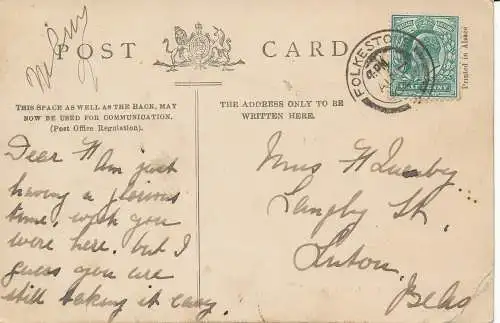 POST CARD
FOLKESTONE
HALFPENNY
Printed in Alsace
THIS SPACE AS WELL AS THE BACK, MAY
NOW BE USED FOR COMMUNICATION.
(Post Office Regulation).
THE ADDRESS ONLY TO BE
WRITTEN HERE.
Dear H Am just
having a glorious
time, wish you
were here. but I
guess you are
still taking it easy.
Miss H Quenby
Langley St.
Luton.
Beds